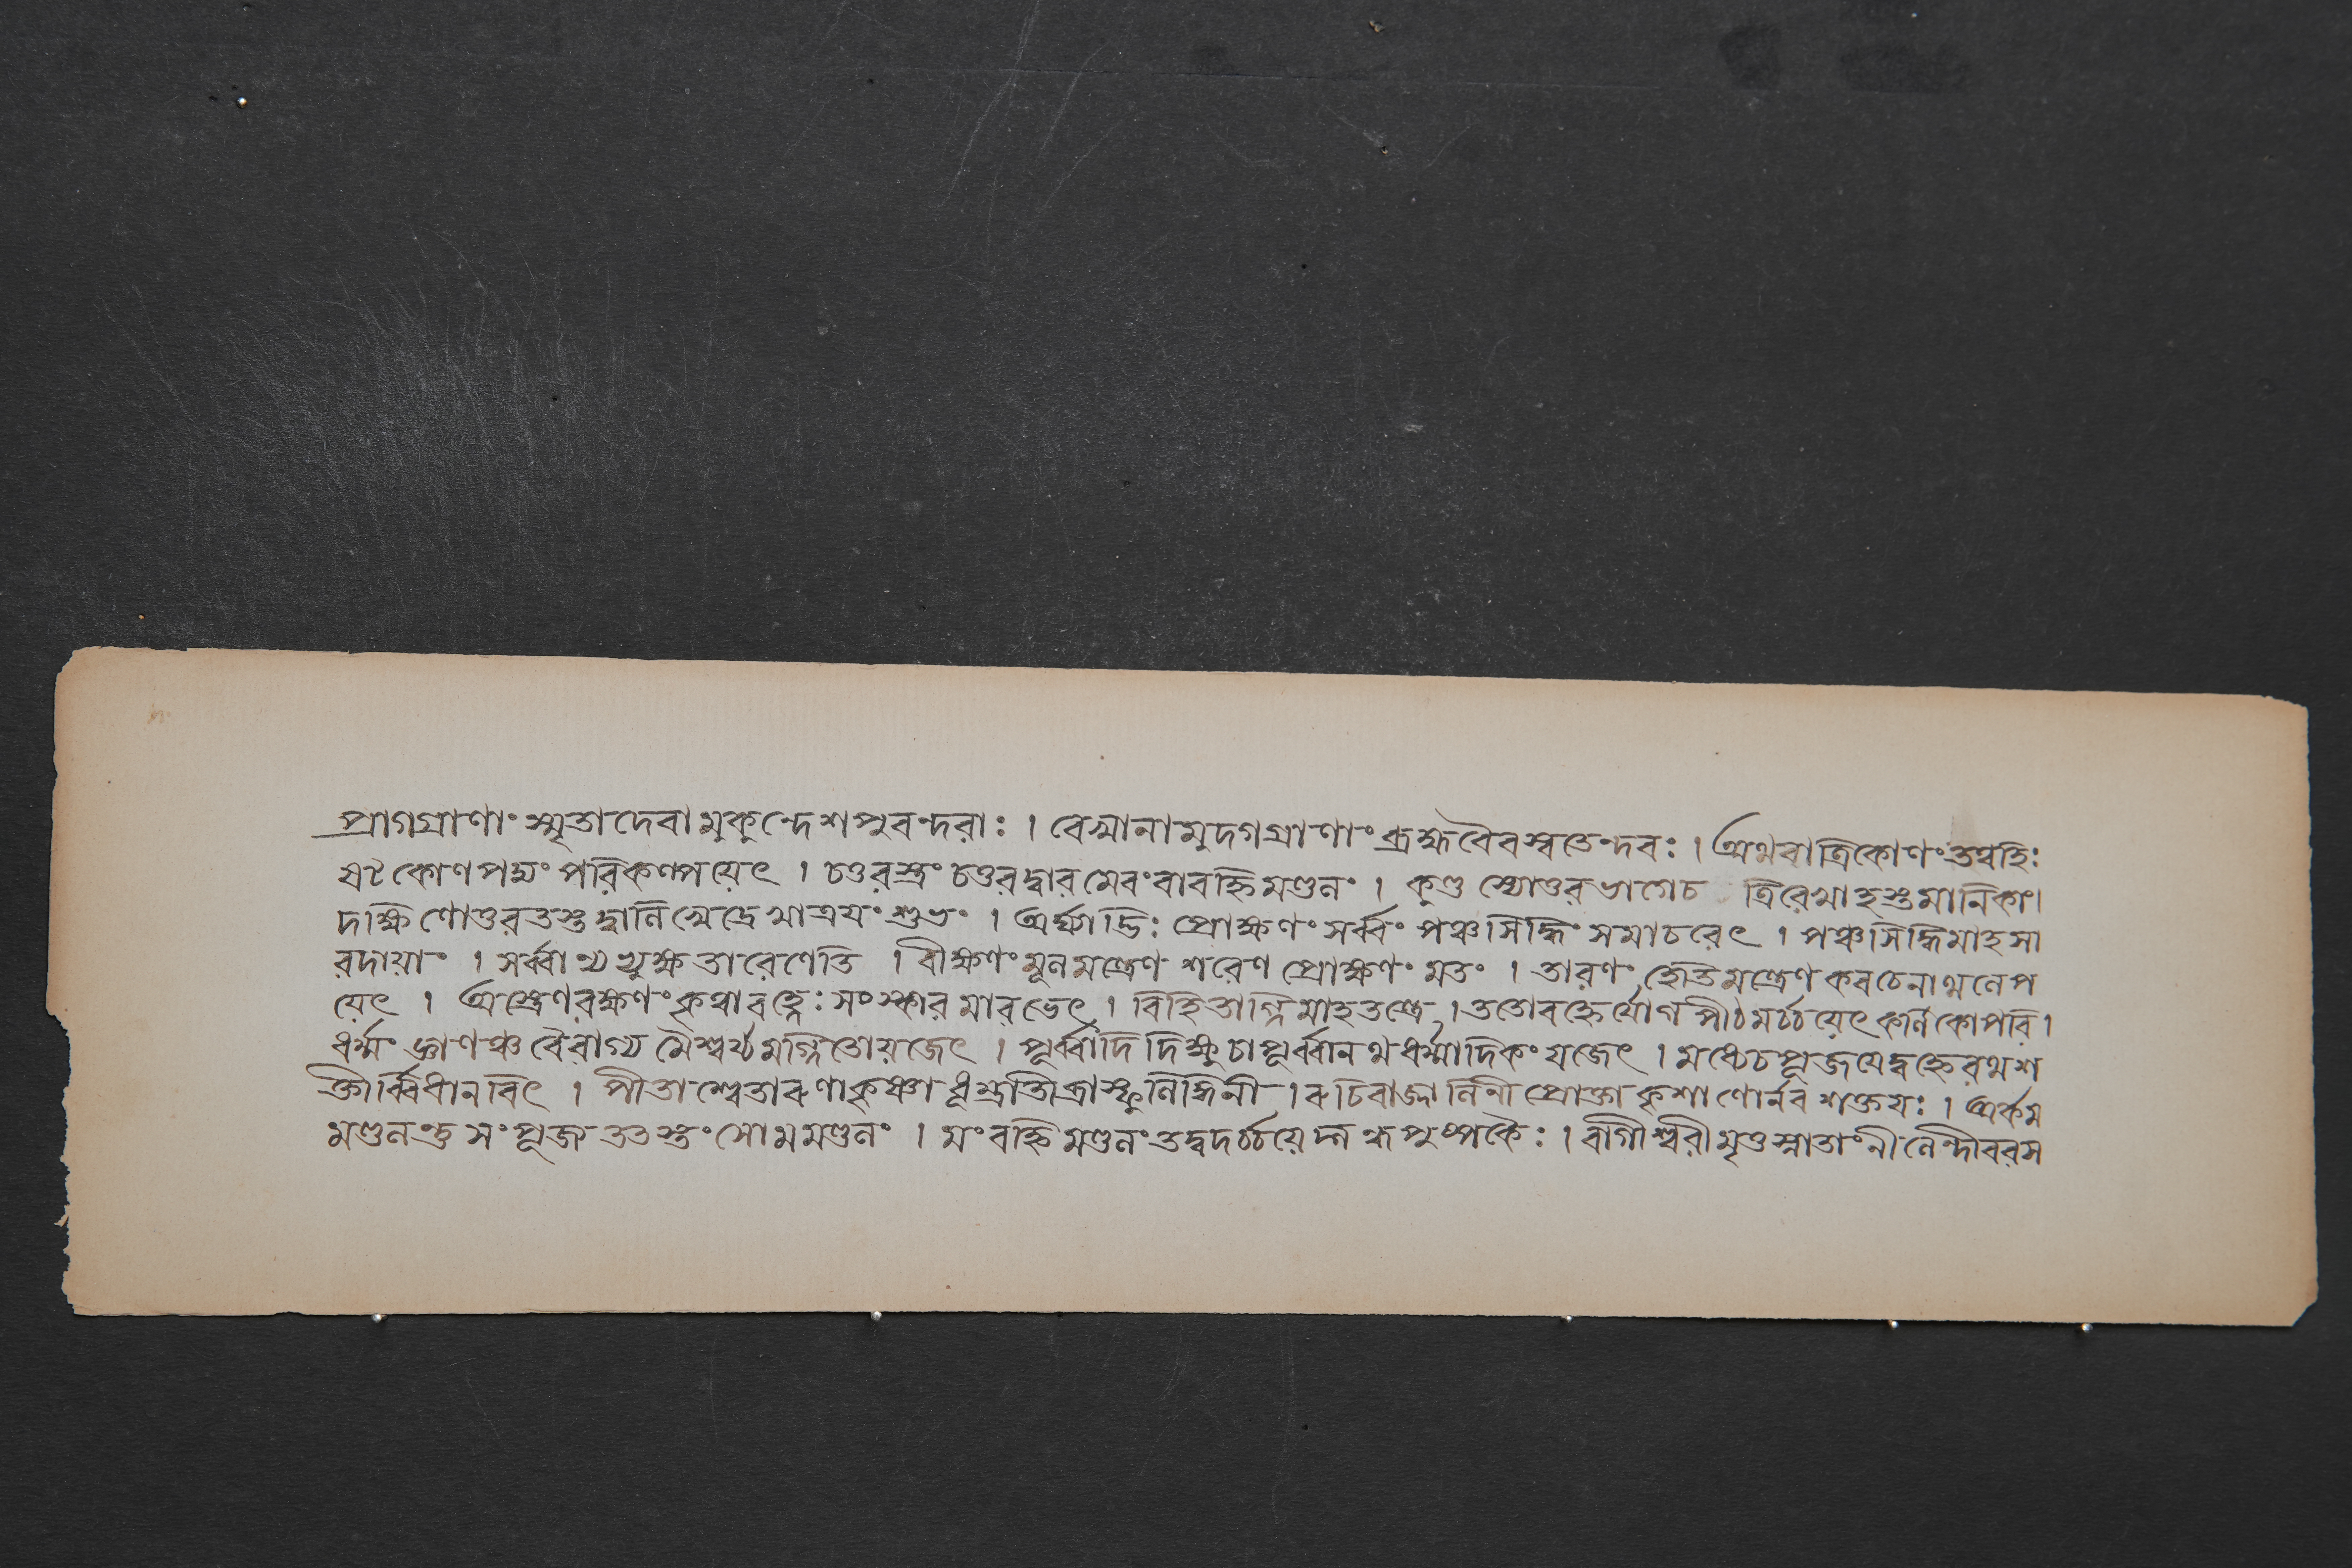 প্রাগগ্রাণাং স্মৃতাদেবা মুকুন্দেশপুরন্দরাঃ । রেখানামুদগগ্রাণাং ব্রহ্মবৈবস্বতেন্দবঃ । অথবাত্রিকোণং তদ্বহিঃ
ষট্কোণপদ্মং পরিকল্পয়েৎ । চতুরস্রং চতুরদ্বারমেবংবাবহ্নিমণ্ডলং । কুণ্ডস্যোত্তরভাগেচ ত্রিরেখাহস্তমানিকাং।
দক্ষিণোত্তরতস্তদ্বল্লিখেদ্রেখাত্রয়ং শুভং । অর্ঘ্যাদ্ভিঃ প্রোক্ষণং সর্ব্বং পঞ্চসিদ্ধিং সমাচরেৎ । পঞ্চসিদ্ধিমাহসা
রদায়াং । সর্ব্বাণ্যভ্যুক্ষ তারেণেতি । বীক্ষণং মূলমন্ত্রেণ শরেণ প্রোক্ষণং মতং । তারণং হেতিমন্ত্রেণ কবচেনাথলেপ
য়েৎ । অস্ত্রেণরক্ষণং কৃত্বাবহ্নেঃ সংস্কারমারভেৎ । বিহিতাগ্নিমাহতন্ত্রে । ততোবহ্নের্যোগপীঠমর্চ্চয়েৎ কর্ণিকোপরি ।
ধর্ম্মং জ্ঞাণঞ্চ বৈরাগ্য মৈশ্বর্য্যমগ্নিতোয়জেৎ । পূর্ব্বাদিদিক্ষুচাপূর্ব্বানথধর্ম্মাদিকং যজেৎ । মধ্যেচপূজয়েদ্বহ্নেরথশ
ক্তীর্ব্বিধানবিৎ । পীতাশ্বেতারুণাকৃষ্ণা ধূম্রাতিব্রাস্ফুলিঙ্গিনী । রুচিরাজ্বালিনী প্রোক্তা কৃশাণোর্নবশক্তয়ঃ । অর্কম
মণ্ডলন্তু সংপূজ্য তত্রস্তং সোমমণ্ডলং । মং বহ্নিমণ্ডলং তদ্বদর্চ্চয়েদ্গন্ধপুষ্পকৈঃ । বাগীশ্বরীমৃতুস্নাতাং নীলেন্দীবরস